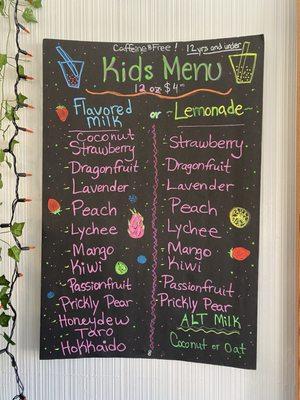 Caffeine Free! 12 yrs and under
Kids Menu
12 oz $4
Flavored Milk or Lemonade
Coconut
Strawberry
Dragonfruit
Lavender
Peach
Lychee
Mango
Kiwi
Passionfruit
Prickly Pear
Honeydew
Taro
Hokkaido
Strawberry
Dragonfruit
Lavender
Peach
Lychee
Mango
Kiwi
Passionfruit
Prickly Pear
ALT Milk
Coconut or Oat